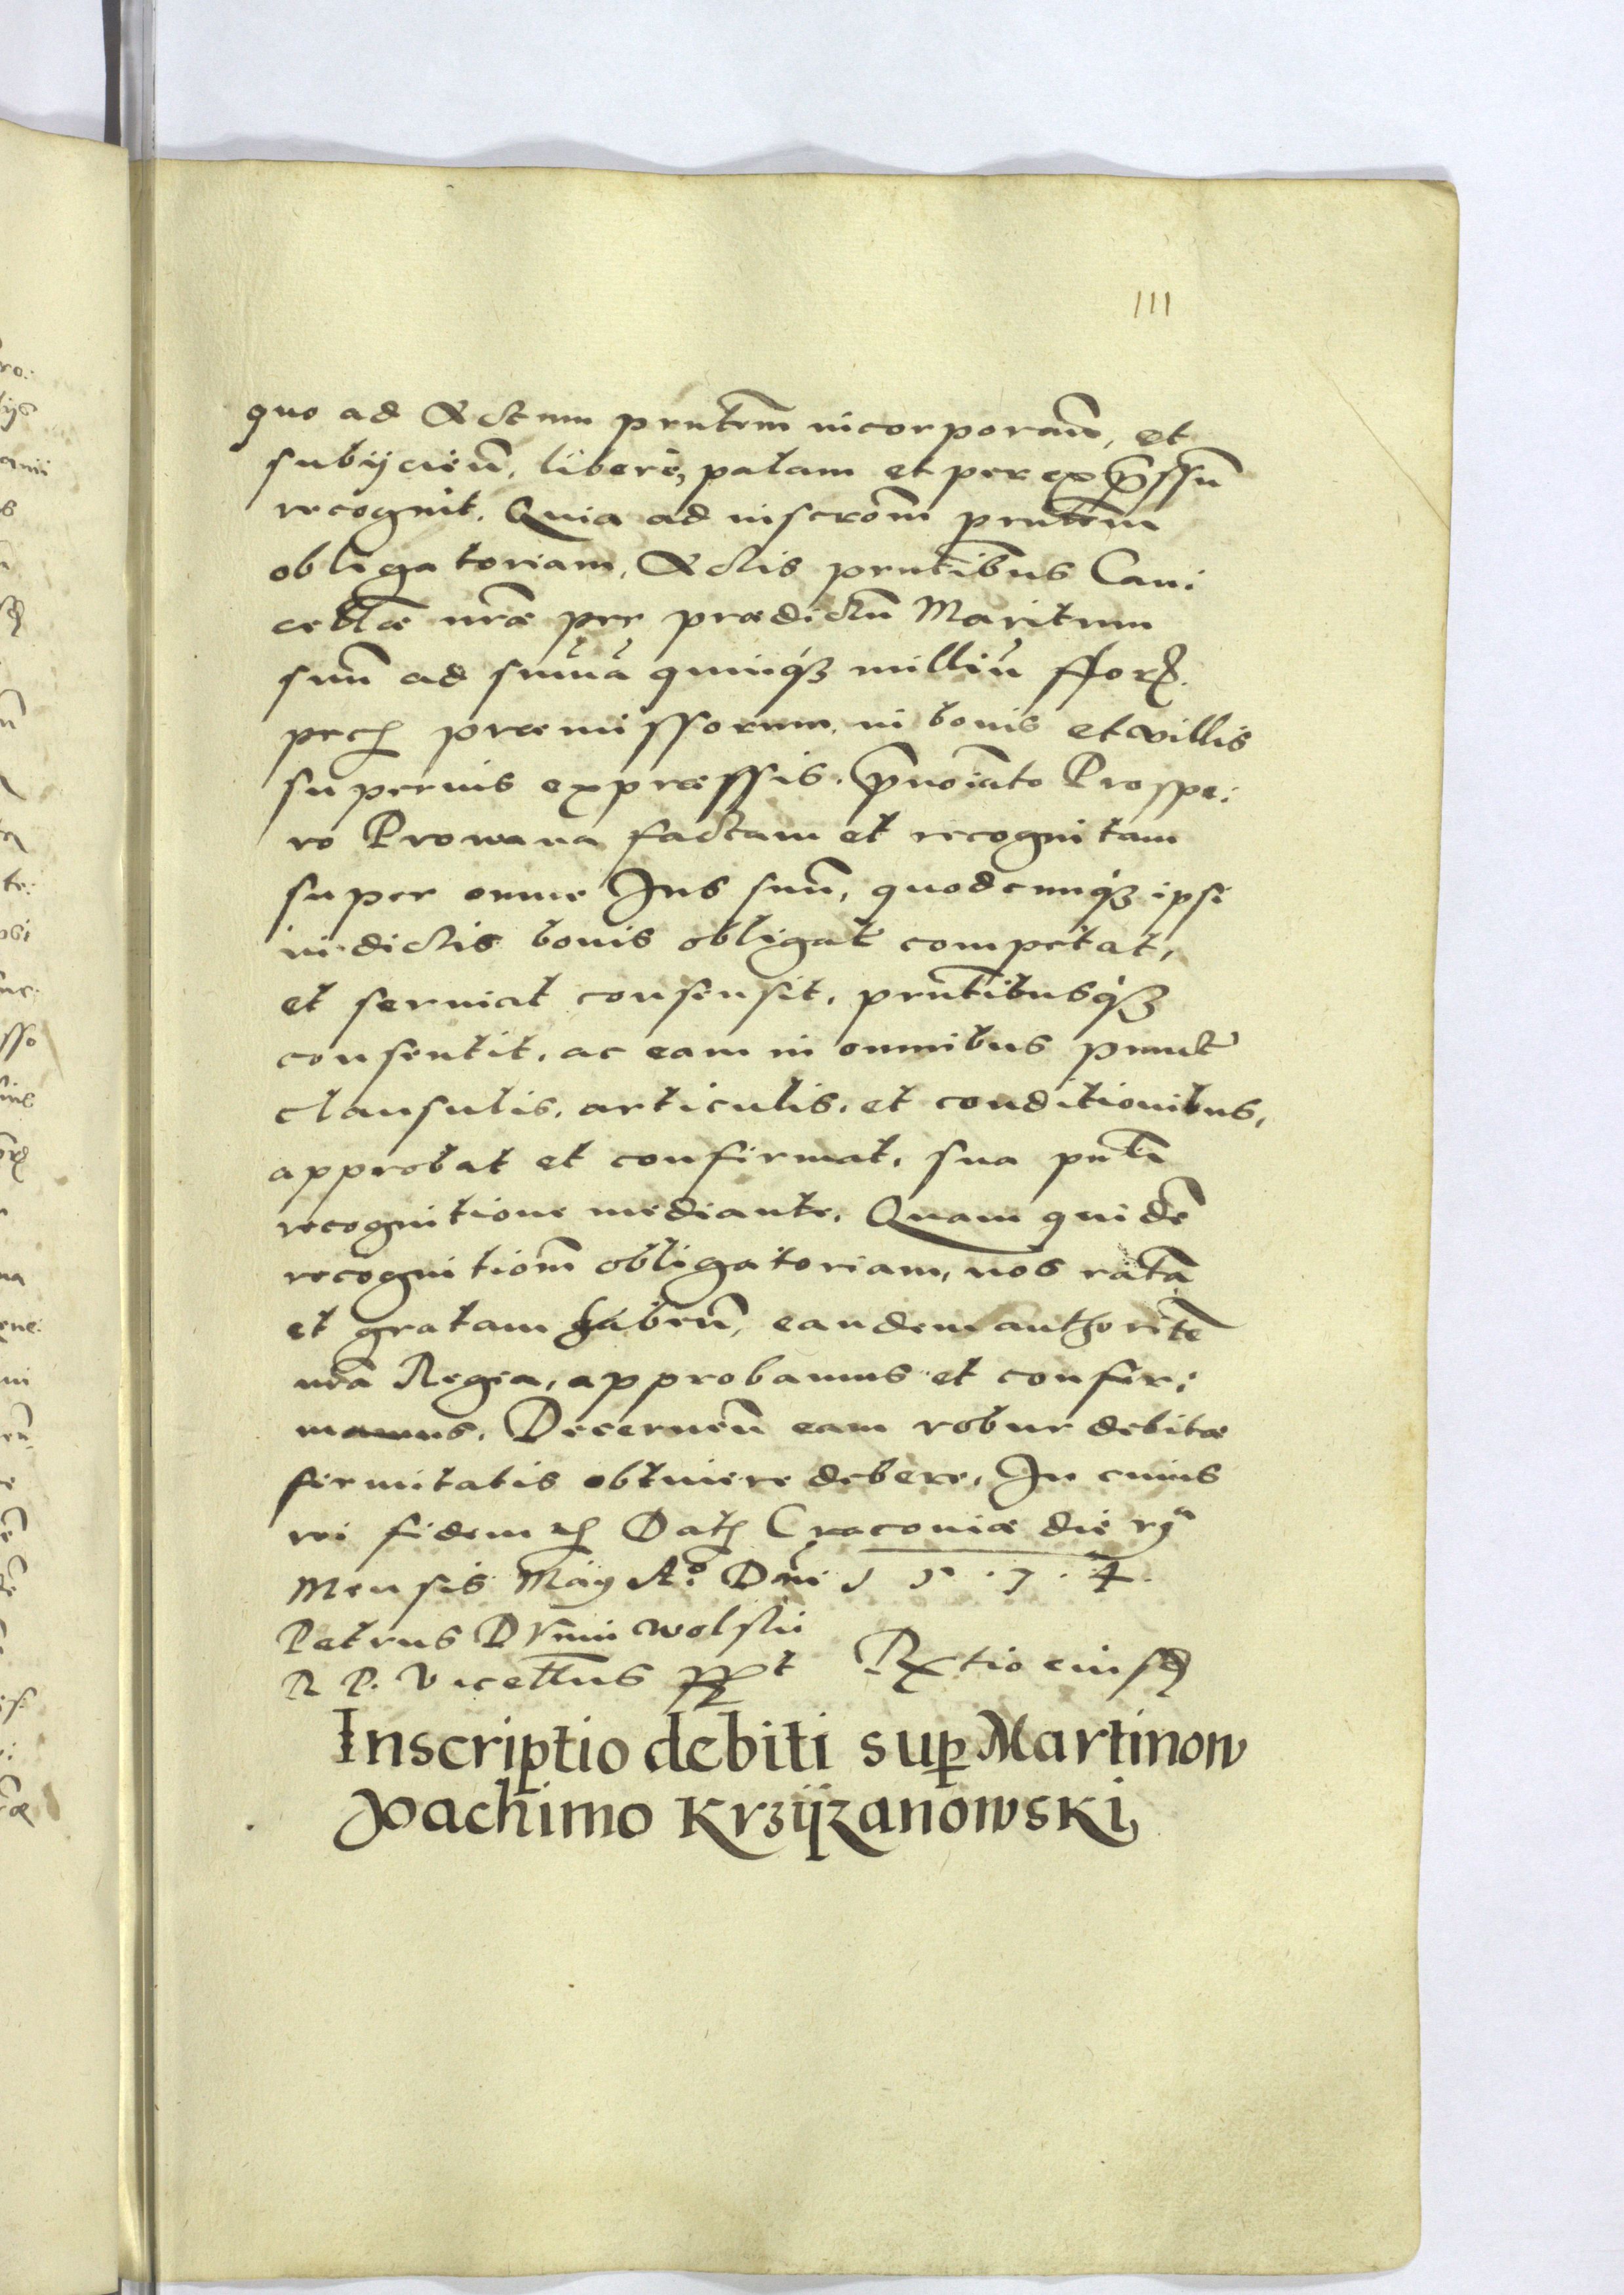 111
quo ad Actum prntem incorporań, et
subijcień, liberè, palam et per expressũ
recognit. Quia ad inscrōnm prntem
obligatoriam, Actis prntibus Can:
cellæ nr̄æ per prædictũ Maritum
suũ ad sum̄ā quinq3 milliũ fflor.
pec præmissorum, in bonis et villis
superius expressis. prænoīato Prospe:
ro Prowana factam et recognitam
super omne Ius suũ, quodcunq3 ipsi
in dictis bonis obligat competat,
et seruiat consensit, prntibusq3
consentit, ac eam in omnibus punct
clausulis, articulis, et conditionibus,
approbat et confirmat, sua pnti
recognitione mediante. Quam quidē
recognitiom̄ obligatoriam, nos ratā
et gratam habeñ, eandem authoritē
nr̄a Regia, approbamus et confir:
mamus. Decerneñ eam robur debitæ
firmitatis obtinere debere, In cuius
rei fidem Dat Cracouiæ die
Mensis Maij A.º Dn̄i 1 5 . 7 . 4 .
Petrus Dunin Wolskii
R P. Vicellus sst R_tio eiusd
Inscriptio debiti sup Martinow
Joachimo Krzijzanowski